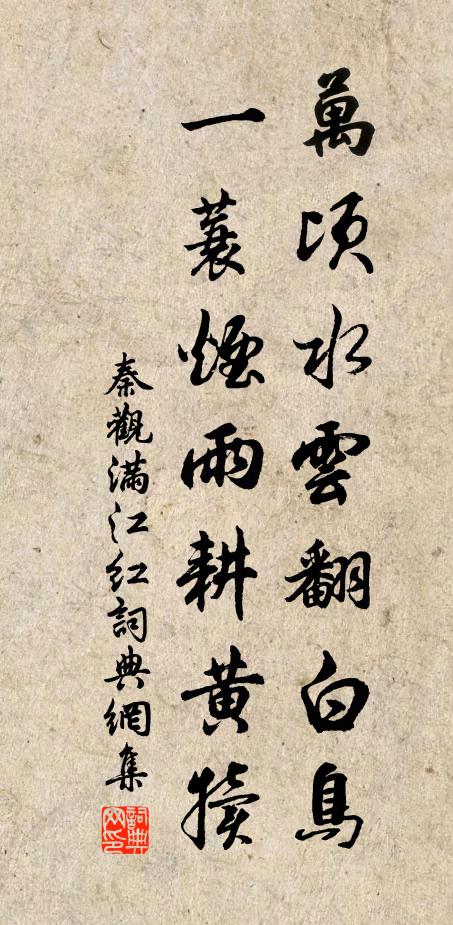 萬頃水雲翻白鳥
一蓑煙雨耕黃犢
秦觀滿江紅詞典網集
詞典網印